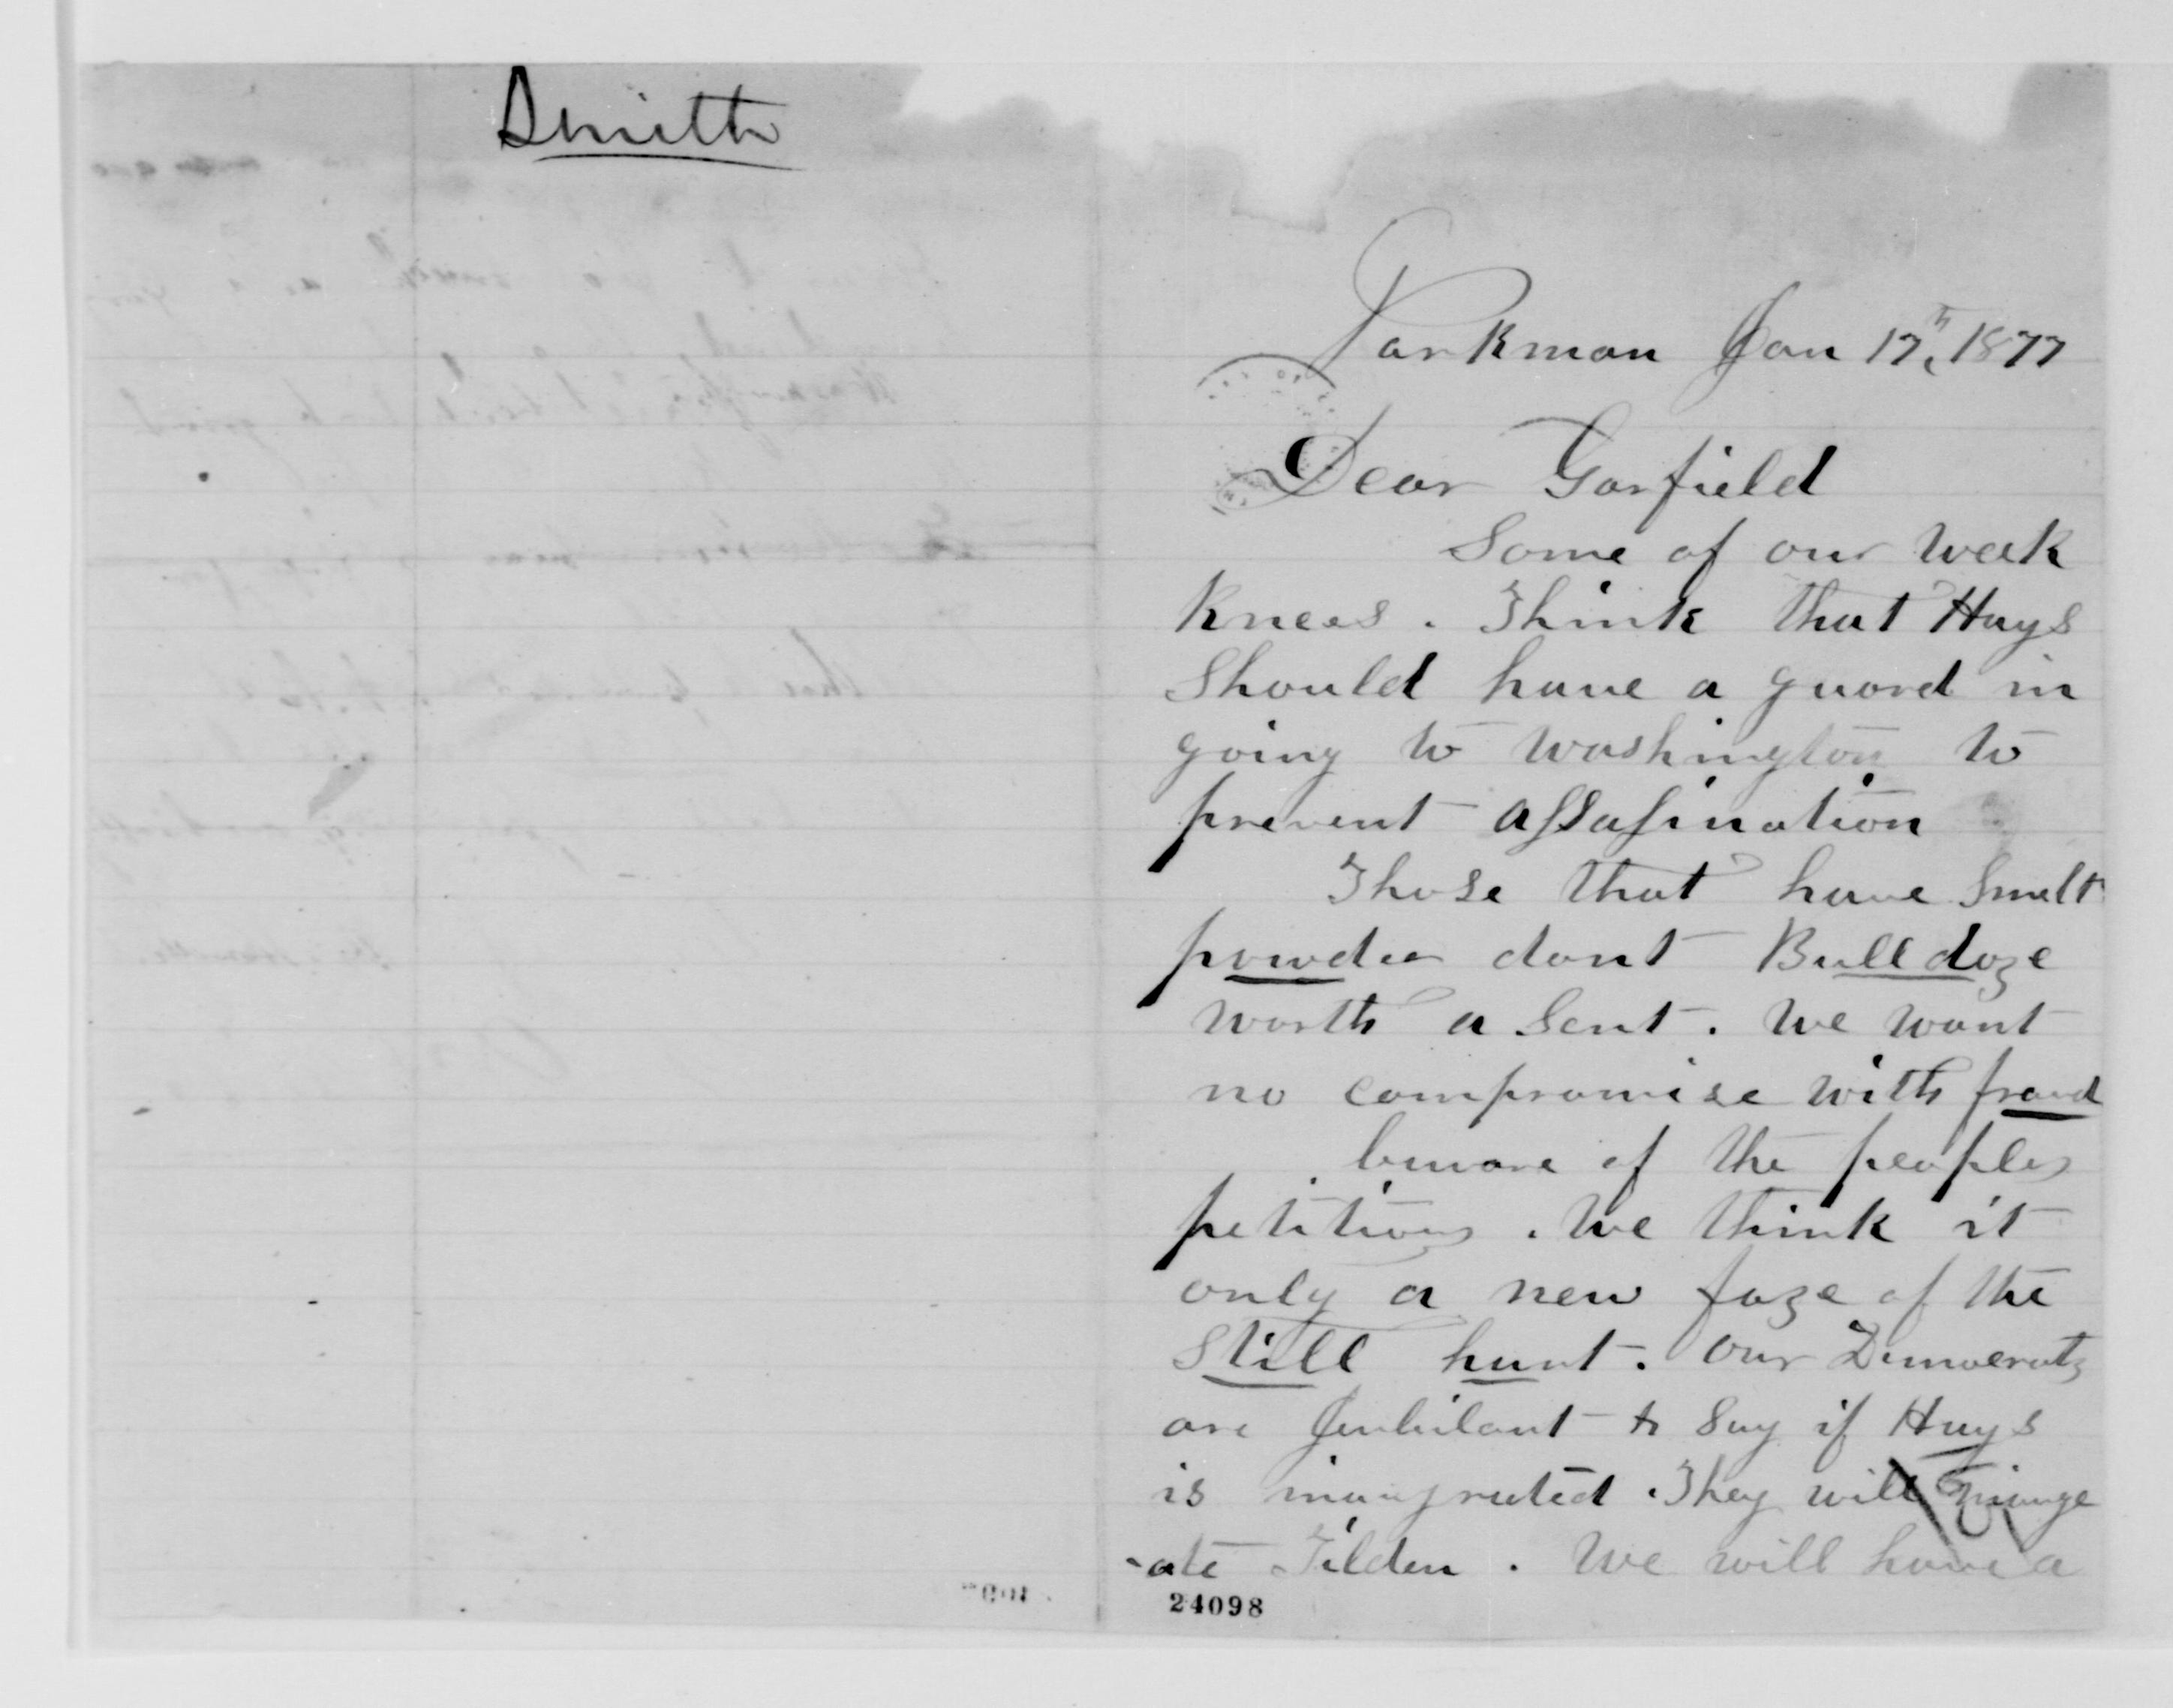 Smith
Parkman Jan 17th, 1877
Dear Garfield
Some of our weak
Knees. Think that Hays
Should have a guard in
going to Washington to
prevent assasination
Those that have Smelt
powder dont Bulldoze
worth a Sent. We want
no compromise with fraud
beware of the peoples
petitions. We think it
only a new faze of the
Still hunt. Our Democrats
are Jubilant to Say if Hays
is inaugruted. They will
-ate Tilden. We will have a
24098